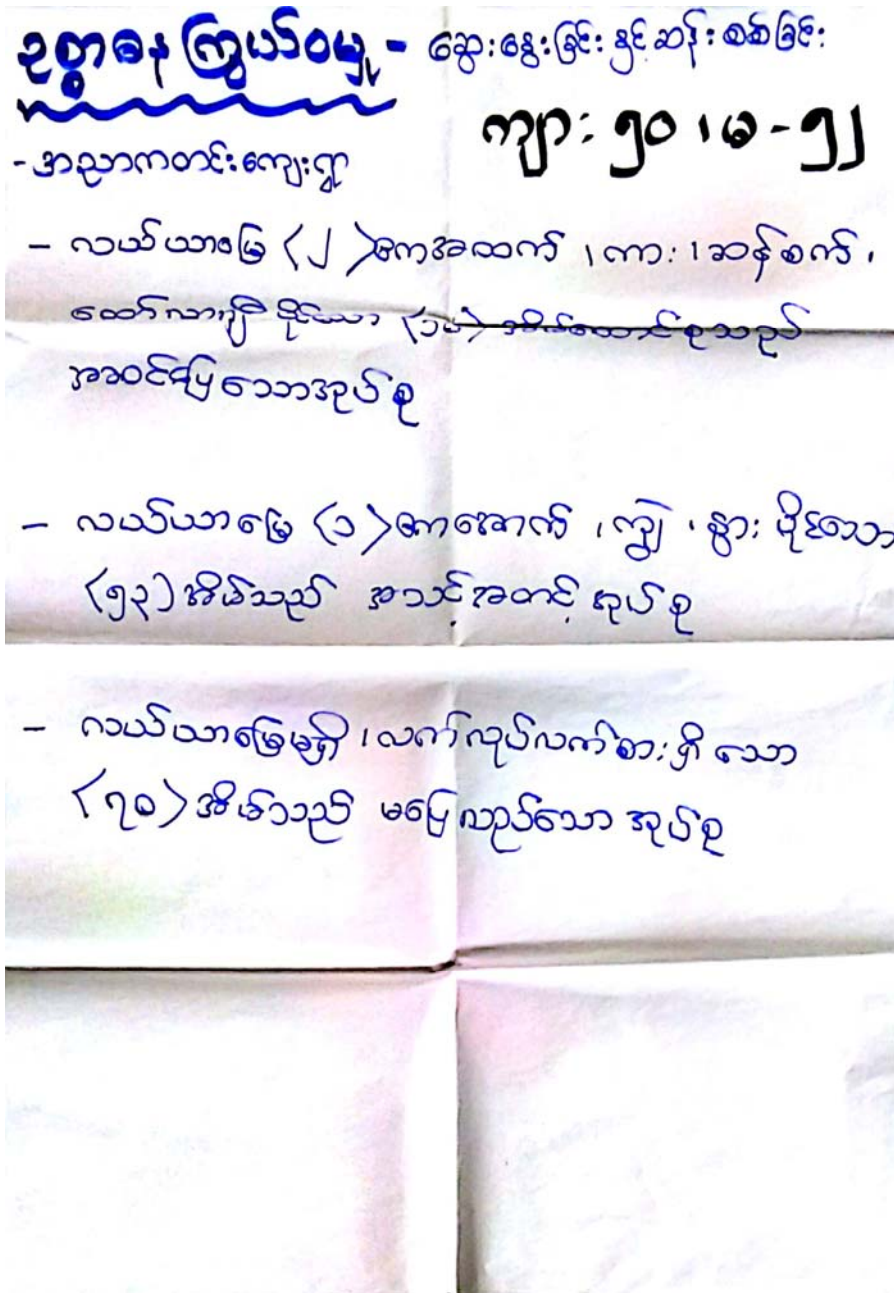 ဥစ္စာဓနကြွယ်ဝမှု - ဆွေးနွေးခြင်းနှင့်ဆန်းစစ်ခြင်း
ကျား - ၅၀ ၊ မ - ၅၂
- အညာကတင်းကျေးရွာ
- လယ်ယာမြေ <၂> ဧကအထက် ၊ ကား ၊ ဆန်စက် ၊
ထော်လာဂျီပိုင်သော <၁၈> အိမ်ထောင်စုသည်
အဆင်ပြေသောအုပ်စု
- လယ်ယာမြေ <၁> ဧကအောက် ၊ ကျွဲ ၊ နွား ပိုင်သော
<၅၃> အိမ်သည် အသင့်အတင့် အုပ်စု
- လယ်ယာမြေမရှိ ၊ လက်လုပ်လက်စားရှိသော
<၇၈> အိမ်သည် မပြေလည်သော အုပ်စု